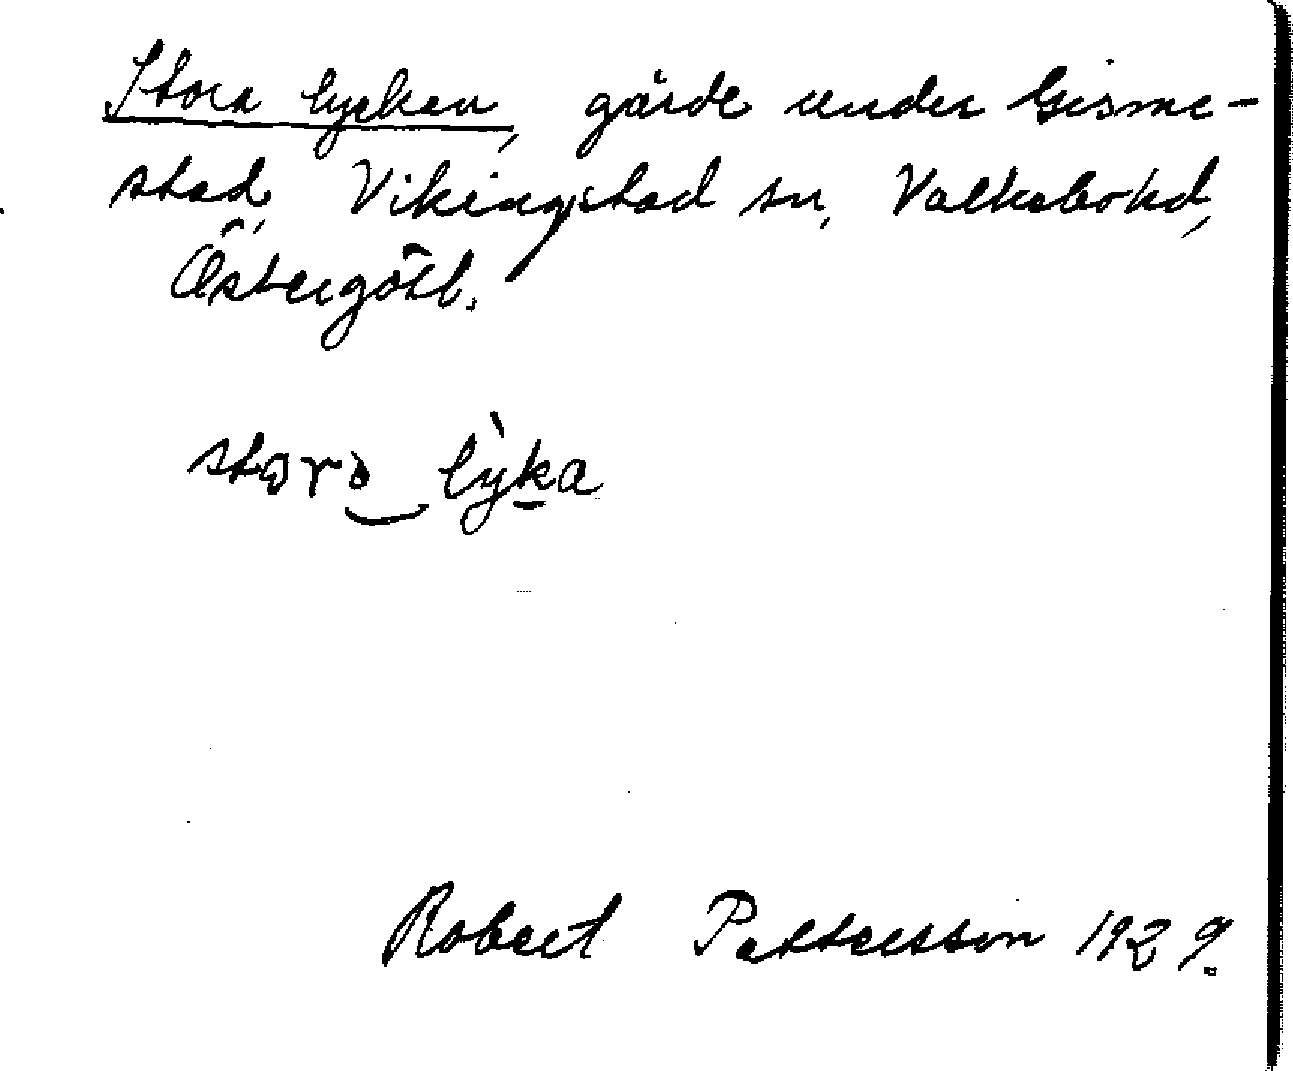 Stora lycken, gärde under Gisme-
stad, Vikingstad sn, Valkebo hd,
Östergötl.
storə lỳka
Robert Pettersson 1929.